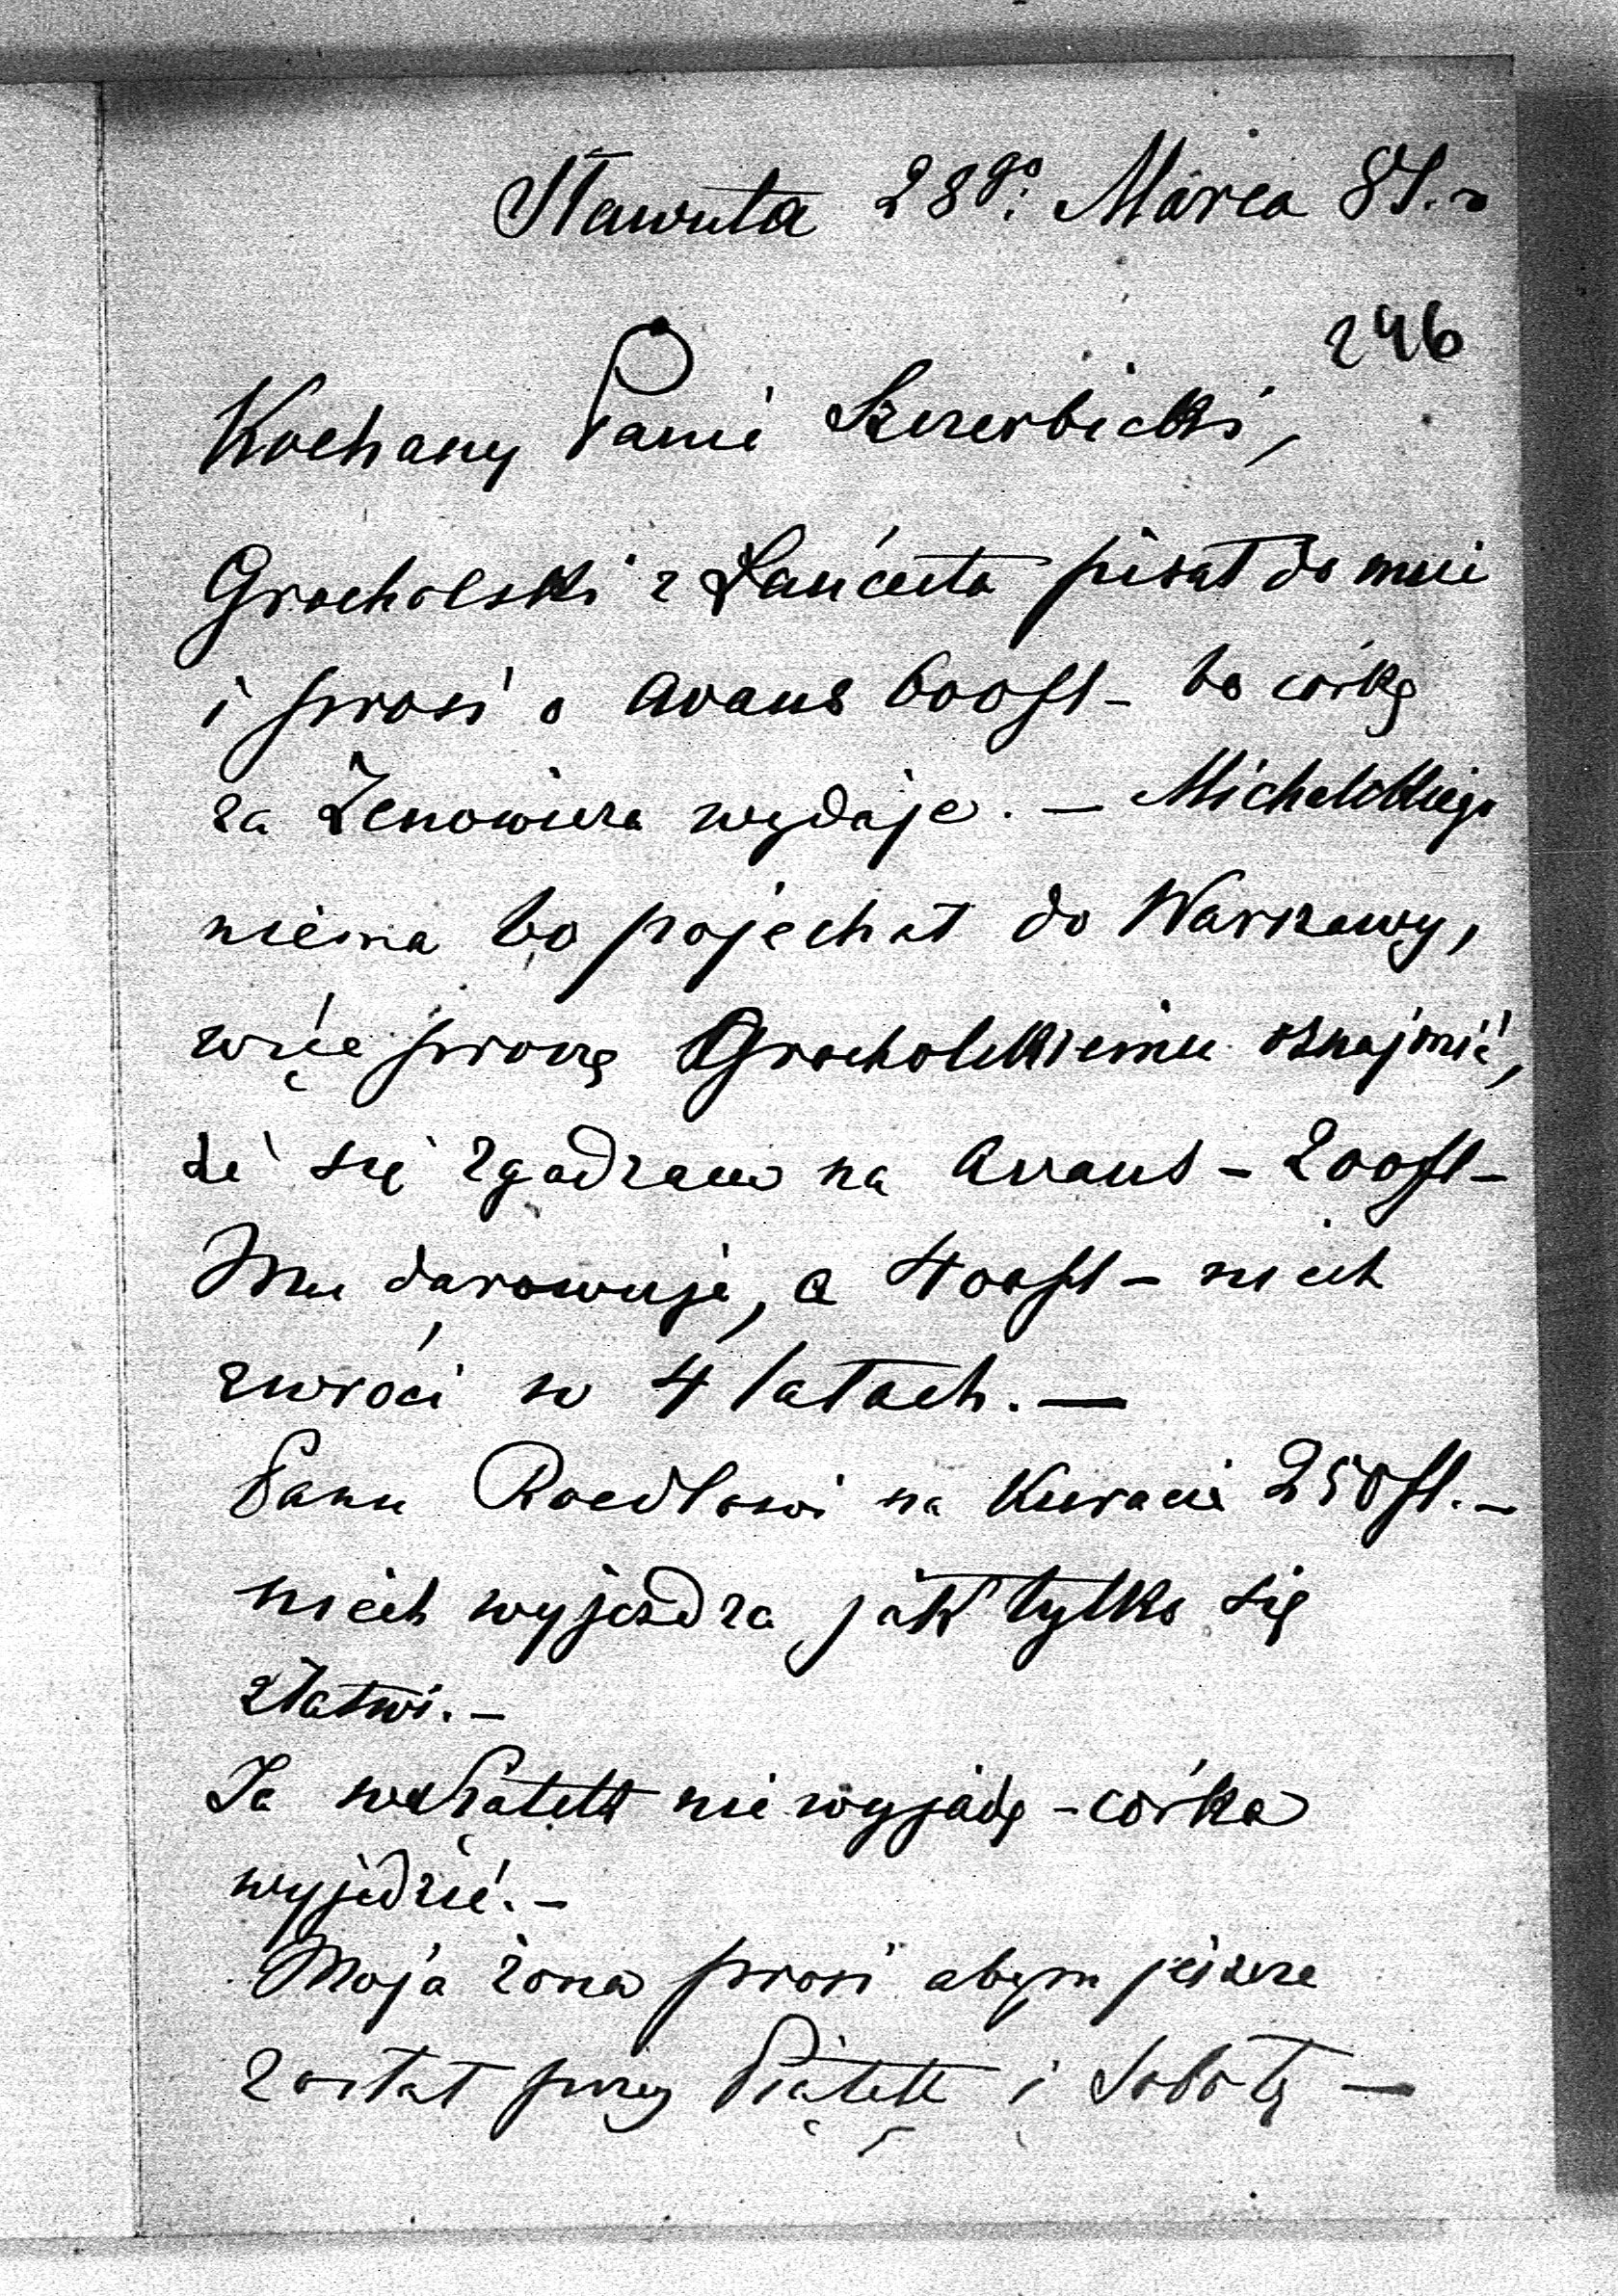 Sławuta 28go. Marca 87. r
246
Kochany Panie Szczerbicki,
Grocholski z Łańcuta pisał do mnie
i prosi o avans 600fl – bo córkę
za Zenowicza wydaje. – Michałskiego
niema bo pojechał do Warszawy,
więc proszę Grocholskiemu oznajmić,
że się zgadzam na avans – 200fl –
Mu darowuję, a 400fl – niech
zwróci w 4 latach. –
Panu Roedlowi na Kuracie 250fl. –
niech wyjeżdża jak tylko się
złatwi. –
Ja w Piątek nie wyjadę – córka
wyjedzie. –
Moja żona prosi abym jeszcze
został przez Piątek i Sobotę –